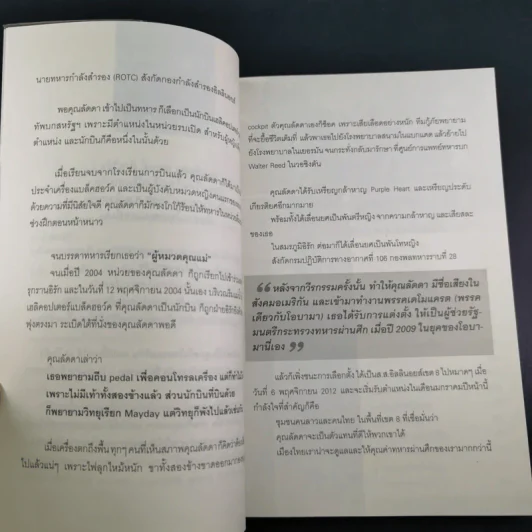 นายทหารกำลังสำรอง (ROTC) สังกัดกองกำลังสำรองอิลลินอยส์
พอคุณลัดดา เข้าไปเป็นทหาร ก็เลือกเป็นนักบินเฮลิคอปเตอร์
ทัพบกสหรัฐฯ เพราะมีตำแหน่งในหน่วยรบเปิด สำหรับผู้หญิง
ตำแหน่ง และนักบินก็คือหนึ่งในนั้นด้วย
เมื่อเรียนจบจากโรงเรียนการบินแล้ว คุณลัดดาก็ได้
ประจำเครื่องแบล็คฮอว์ค และเป็นผู้บังคับหมวดหญิงคนแรก
ด้วยความที่มีนิสัยใจดี คุณลัดดาก็มักชงโกโก้ร้อนให้ทหาร
ช่วงฝึกตอนหน้าหนาว
จนบรรดาทหารเรียกเธอว่า "ผู้หมวดคุณแม่"
จนเมื่อปี 2004 หน่วยของคุณลัดดา ก็ถูกเรียกไปเข้า
รุกรานอิรัก และในวันที่ 12 พฤศจิกายน 2004 นั้นเอง บริเวณ
เฮลิคอปเตอร์แบล็คฮอว์ค ที่คุณลัดดาเป็นนักบิน ก็ถูกฝ่ายอิรัก
พุ่งตรงมา ระเบิดใต้ที่นั่งของคุณลัดดาพอดี
คุณลัดดาเล่าว่า
เธอพยายามถีบ pedal เพื่อคอนโทรลเครื่อง แต่ก็ทำ
เพราะไม่มีเท้าทั้งสองข้างแล้ว ส่วนนักบินที่บินด้วย
ก็พยายามวิทยุเรียก Mayday แต่วิทยุก็พังไปแล้ว
เมื่อเครื่องตกถึงพื้น ทุกๆ คนที่เห็นสภาพคุณลัดดาก็คิดว่า
ไปแล้วแน่ๆ เพราะไฟลุกไหม้หนัก ขาทั้งสองข้างขาดออกมา
cockpit ตัวคุณลัดดาเองก็ช็อค เพราะเสียเลือดอย่างหนัก ทีมกู้ภัยพยายาม
ที่จะยื้อชีวิตเต็มที่ แล้วพาเธอไปยังโรงพยาบาลสนามในแบกแดด แล้วย้ายไป
ยังโรงพยาบาลในเยอรมัน จนกระทั่งกลับมารักษา ที่ศูนย์การแพทย์ทหารบก
Walter Reed ในวอชิงตัน
คุณลัดดาได้รับเหรียญกล้าหาญ Purple Heart และเหรียญประดับ
เกียรติยศอีกมากมาย
พร้อมทั้งได้เลื่อนยศเป็นพันตรีหญิง จากความกล้าหาญ และเสียสละ
ของเธอ
ในสมรภูมิอิรัก ต่อมาก็ได้เลื่อนยศเป็นพันโทหญิง
สังกัดกรมปฏิบัติการทางอากาศที่ 106 กองพลทหารราบที่ 28
❝ หลังจากวีรกรรมครั้งนั้น ทำให้คุณลัดดา มีชื่อเสียงใน
สังคมอเมริกัน และเข้ามาทำงานพรรคเดโมแครต (พรรค
เดียวกับโอบามา) เธอได้รับการแต่งตั้ง ให้เป็นผู้ช่วยรัฐ-
มนตรีกระทรวงทหารผ่านศึก เมื่อปี 2009 ในยุคของโอบา-
มานี่เอง ❞
แล้วก็เพิ่งชนะการเลือกตั้ง ได้เป็นส.ส.อิลลินอยส์เขต 8 ไปหมาดๆ เมื่อ
วันที่ 6 พฤศจิกายน 2012 และจะเริ่มรับตำแหน่งในเดือนมกราคมปีหน้านี้
กำลังใจที่สำคัญก็คือ
ชุมชนคนลาวและคนไทย ในพื้นที่เขต 8 ที่เชื่อมั่นว่า
คุณลัดดาจะเป็นตัวแทนที่ดีให้พวกเขาได้
เมืองไทยเราน่าจะดูแลและให้คุณค่าทหารผ่านศึกของเรามากกว่านี้